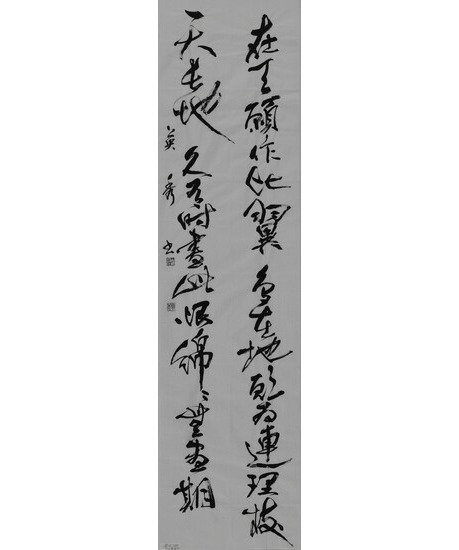 在天願作比翼鳥在地願為連理枝
天長地久有時盡此恨綿々無盡期
英秀書